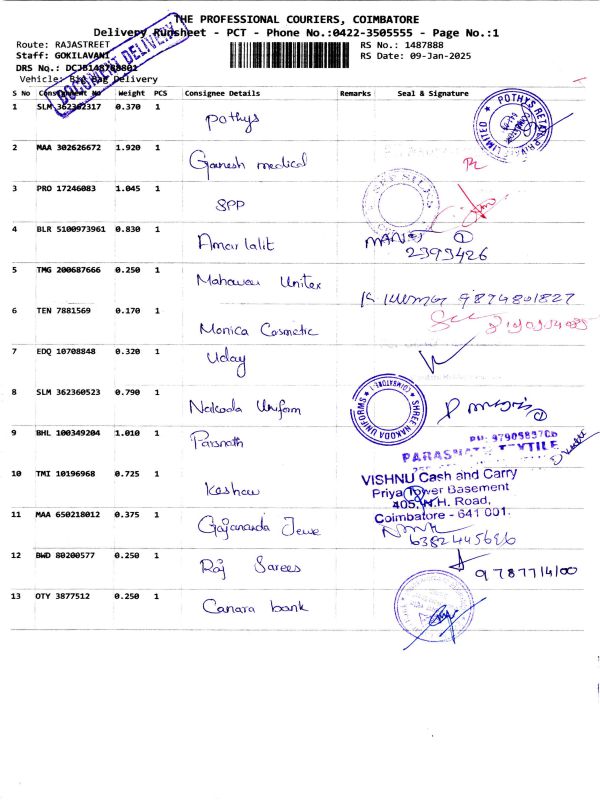 THE PROFESSIONAL COURIERS, COIMBATORE
Delivery Runsheet - PCT - Phone No.:0422-3505555 - Page No.:1
Route: RAJASTREET
Staff: GOKILAVANI
DRS No.: DCJB148788801
Vehicle: Big Bag Delivery
RS No.: 1487888
RS Date: 09-Jan-2025
DOCUMENT DELIVERY
S No Consignment No Weight PCS Consignee Details Remarks Seal & Signature
1 SLM 362362317 0.370 1 Pothys
POTHYS RETAIL PRIVATE LIMITED
2 MAA 302626672 1.920 1 Ganesh medical
3 PRO 17246083 1.045 1 SPP
SPP SILKS
4 BLR 5100973961 0.830 1 Amar lalit
2393426
5 TMG 200687666 0.250 1 Mahaveer Unitex
K Kumar 9874801827
6 TEN 7881569 0.170 1 Monica Cosmetic
7 EDQ 10708848 0.320 1 Uday
8 SLM 362360523 0.790 1 Nakoda Uniform
SHREE NAKODA UNIFORMS COIMBATORE-1
9 BHL 100349204 1.010 1 Parsnath
PH: 9790583706
PARASNATH TEXTILE
10 TMI 10196968 0.725 1 Keshav
VISHNU Cash and Carry
Priya Tower Basement
405, N.H. Road,
Coimbatore - 641 001.
11 MAA 650218012 0.375 1 Gajananda Jewe
6382445686
12 BWD 80200577 0.250 1 Raj Sarees
9787714100
13 OTY 3877512 0.250 1 Canara bank